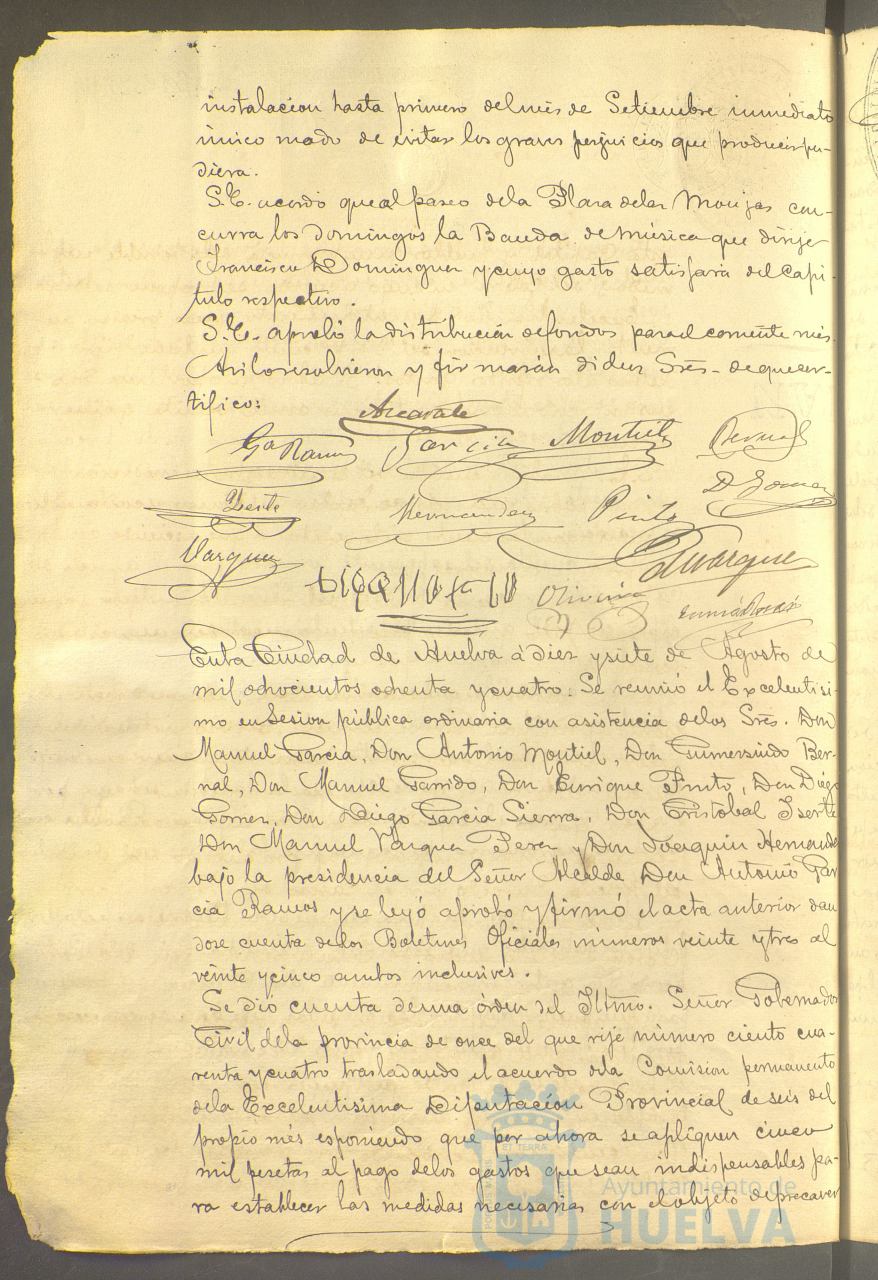 instalacion hasta primero del més de Setiembre inmediato
único modo de evitar los graves perjuicios que producir pu-
diera.
S.E. acordó que al paseo de la Plaza de las Monjas con-
curra los Domingos la Banda de música que dirije
Francisco Dominguez y cuyo gasto satisfará del Capi-
tulo respectivo.
S.E. aprobó la distribución de fondos para el corriente més.
Asi lo resolvieron y firmarán dichos Srés. de que cer-
tifico:
Garcia Montiel Bernal
D. Gomez
Iserte Hernandez Pinto
Vazquez
Oliveira
En la Ciudad de Huelva á diez y siete de Agosto de
mil ochocientos ochenta y cuatro. Se reunió el Excelentisi-
mo en Sesion pública ordinaria con asistencia de los Srés. Don
Manuel Garcia, Don Antonio Montiel, Don Gumersindo Ber-
nal, Don Manuel Garrido, Don Enrique Pinto, Don Diego
Gomez, Don Diego Garcia Sierra, Don Cristobal Iserte
Don Manuel Vazquez Perez y Don Joaquin Hernandez
bajo la presidencia del Señor Alcalde Don Antonio Gar
cia Ramos y se leyó aprobó y firmó el acta anterior dan
dose cuenta de los Boletines Oficiales números veinte y tres al
veinte y cinco ambos inclusives.
Se dió cuenta de una órden del Iltmo. Señor Gobernador
Civil de la provincia de once del que rije número ciento cua-
renta y cuatro trasladando el acuerdo de la Comision permanente
de la Excelentisima Diputacion Provincial de seis del
propio més esponiendo que por ahora se apliquen cinco
mil pesetas al pago de los gastos que sean indispensables pa-
ra establecer las medidas necesarias con el objeto de precaver
Ayuntamiento de
HUELVA